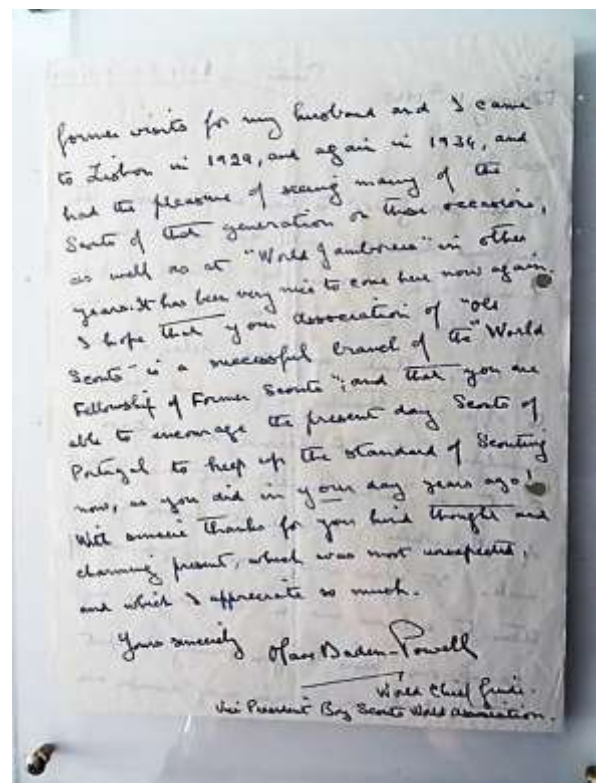 former visits for my husband and I came
to Lisbon in 1929, and again in 1934, and
had the pleasure of seeing many of the
Scouts of that generation on those occasions,
as well as at "World Jamborees" in other
years. It has been very nice to come here now again.
I hope that your association of "Old
Scouts" is a successful branch of the "World
Fellowship of Former Scouts"; and that you are
able to encourage the present day Scouts of
Portugal to keep up the standard of Scouting
now, as you did in your day years ago!
With sincere thanks for your kind thought and
charming present, which was most unexpected,
and which I appreciate so much.
Yours sincerely Olave Baden-Powell
World Chief Guide.
Vice President Boy Scouts World Association.